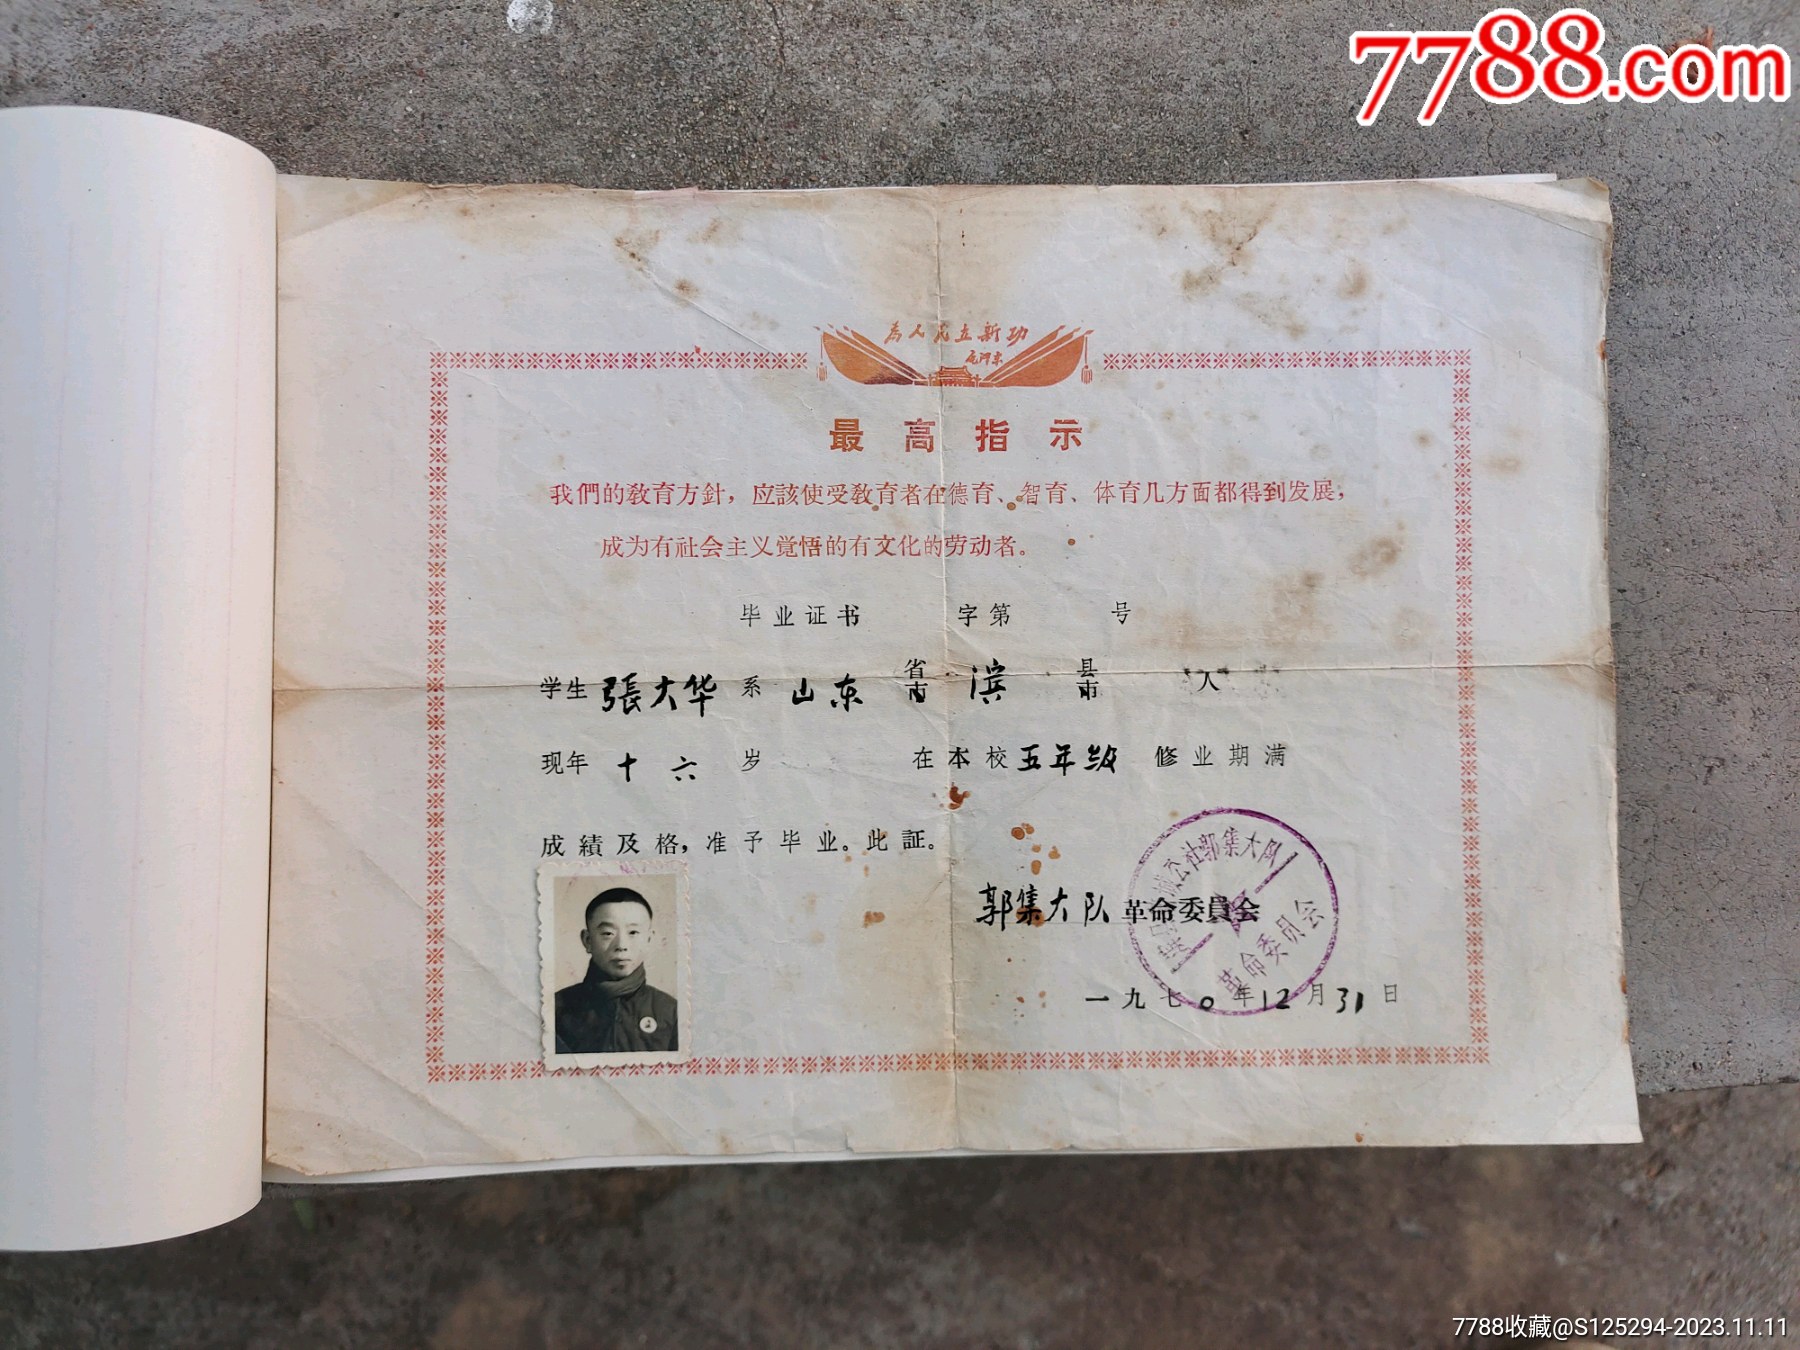 7788.com
为人民立新功
毛泽东
最高指示
我們的敎育方針，应該使受敎育者在德育、智育、体育几方面都得到发展，
成为有社会主义觉悟的有文化的劳动者。
毕业证书 字第 号
学生 張大华 系 山东 省市 滨 县市 人
现年 十六 岁 在本校 五年级 修业期满
成績及格，准予毕业。此証。
公社郭集大队
革命委员会
郭集大队 革命委員会
一九七0年12月31日
7788收藏@S125294-2023.11.11